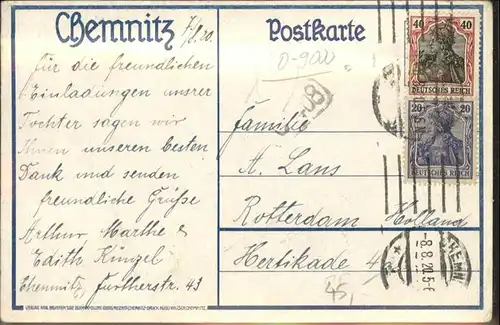 Chemnitz 7/8.20.
Für die freundlichen
Einladungen unsrer
Tochter sagen wir
Ihnen unseren besten
Dank und senden
freundliche Grüße
Arthur Marthe &
Edith Künzel
Chemnitz, Further str. 43
Postkarte
0-9000
38
Familie
A. Lans
Rotterdam Holland
Hertikade 4a
45,-
40 40
DEUTSCHES REICH
20 20
DEUTSCHES REICH
CHEMN
8.8.20.5-6